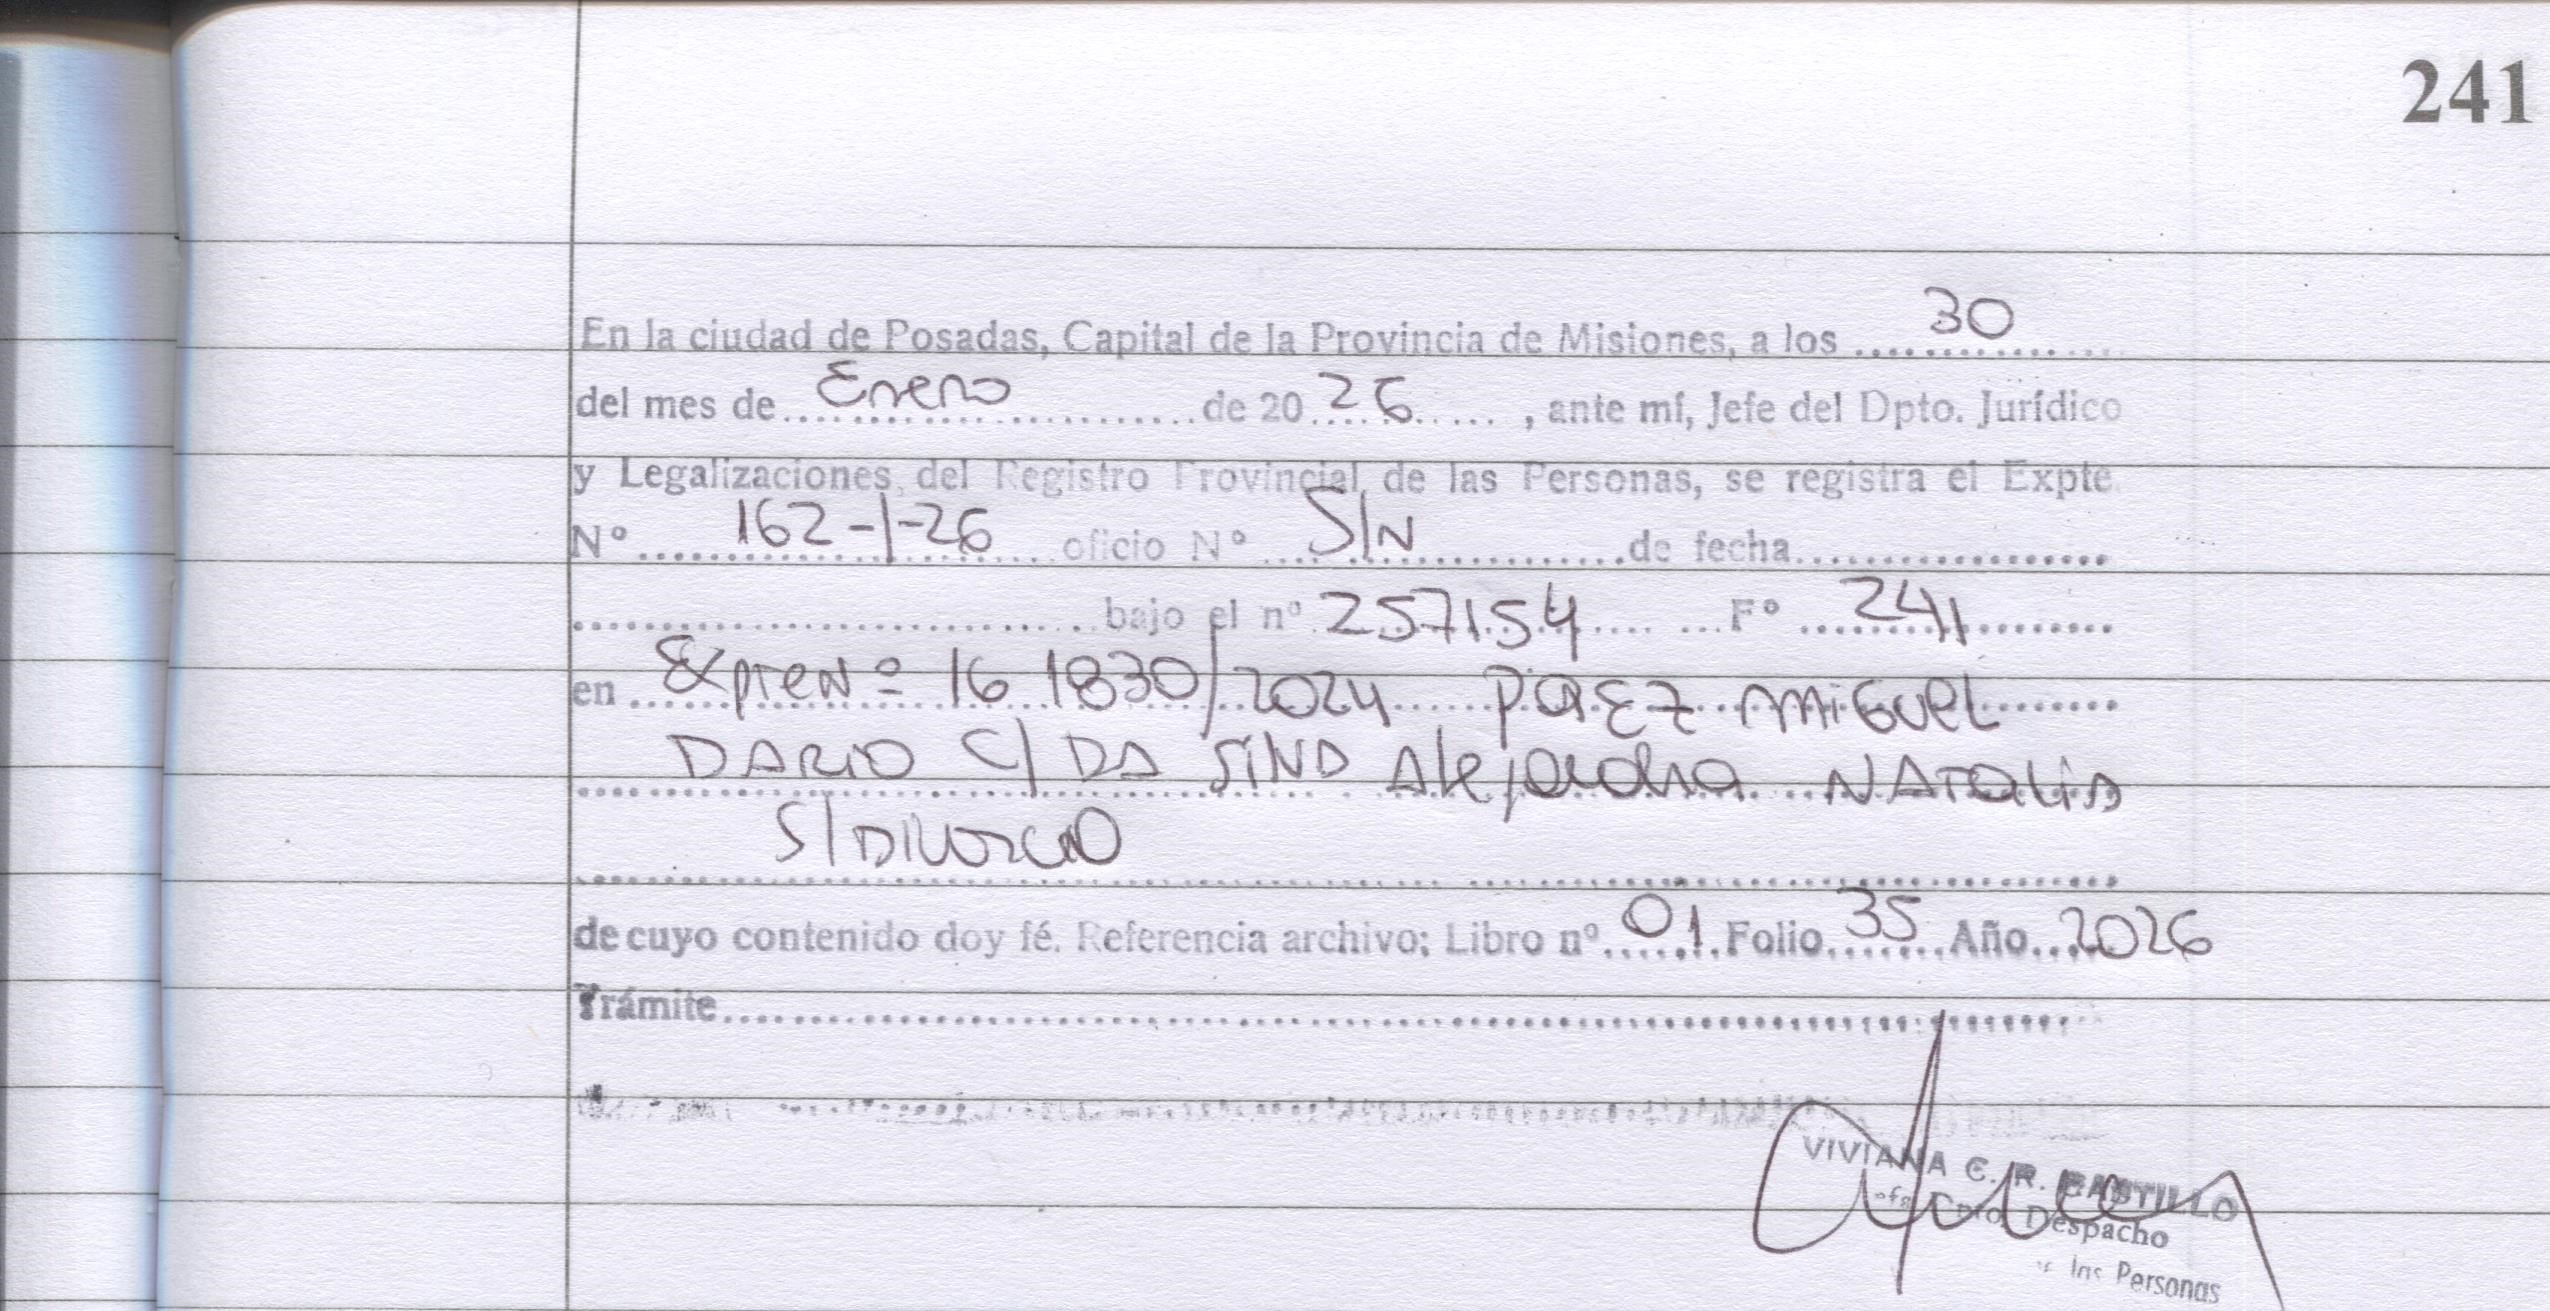 241
En la ciudad de Posadas, Capital de la Provincia de Misiones, a los 30
del mes de Enero de 20 26, ante mí, Jefe del Dpto. Jurídico
y Legalizaciones, del Registro Provincial de las Personas, se registra el Expte.
Nº 162-1-26 oficio Nº S/N de fecha
bajo el nº 257154 Fº 241
en Expte Nº 161830/2024 PAEZ MIGUEL
DARIO C/ DA SILVA Alejandra NATALIA
S/DIVORCIO
de cuyo contenido doy fé. Referencia archivo; Libro nº 01 Folio 35 Año 2026
Trámite
VIVIANA C. R.
Dpto. Despacho
las Personas